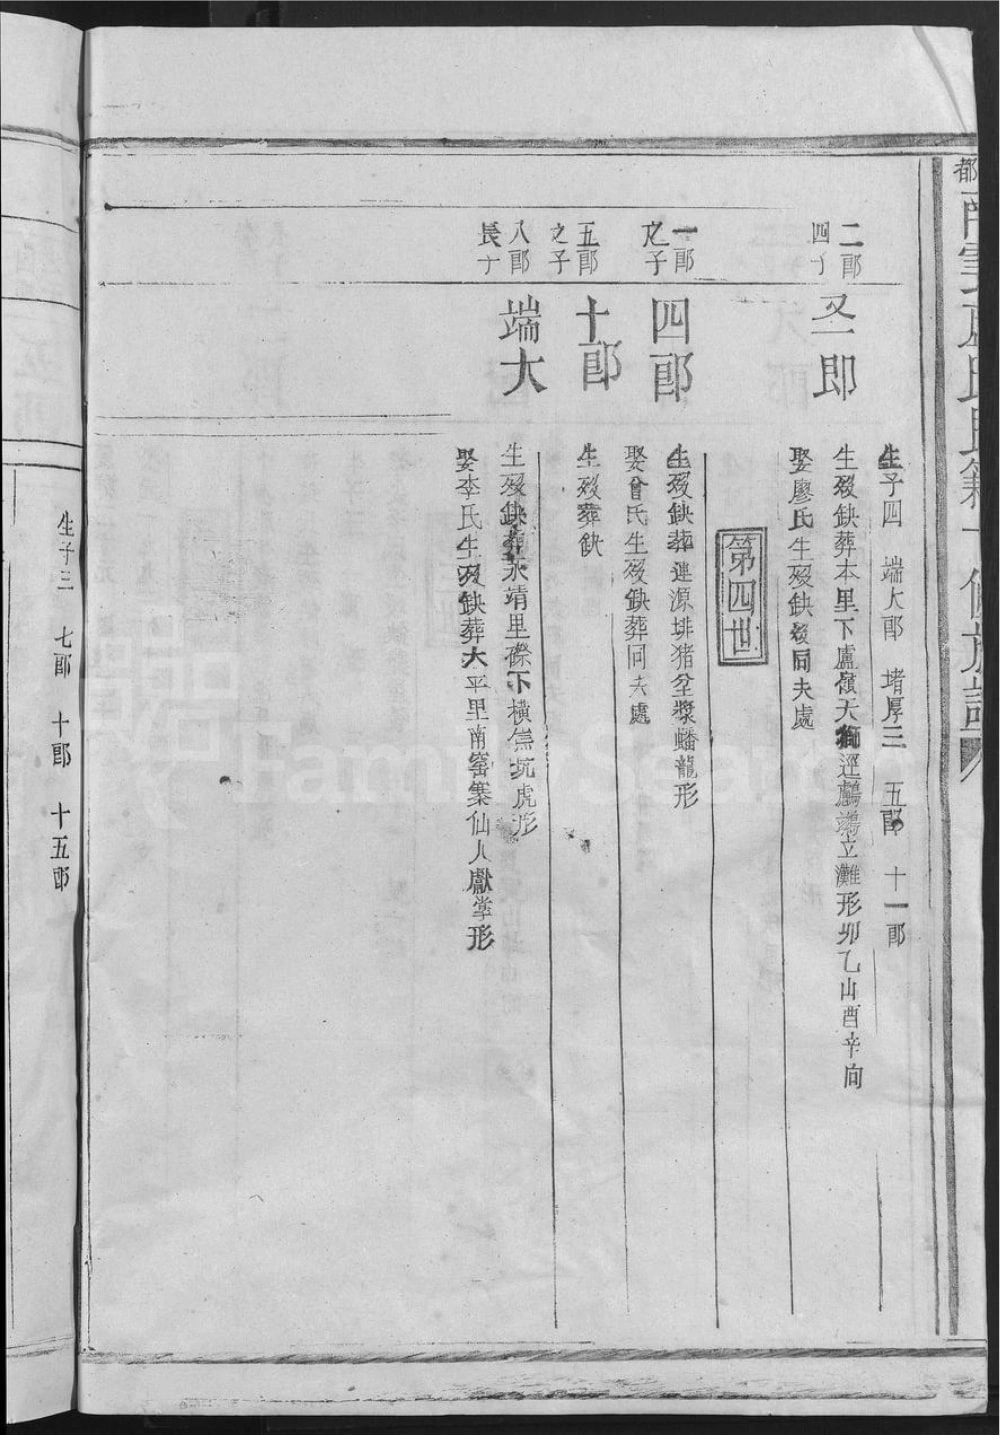 都
生子四 端大郎 堵厚三 五郎 十一郎
二郎
四子
叒一郎
生殁缺葬本里下盧嶺天獅逕鸕鶿立灘形卯乙山酉辛向
娶廖氏生殁缺葬同夫處
第四世
一郎
之子
四郎
生殁缺葬蓮源排猪坌漿蟠龍形
娶曾氏生殁缺葬同夫處
五郎
之子
十郎
生殁葬缺
八郎
長子
端大
生殁缺葬永靖里磜下橫坑虎形
娶李氏生殁缺葬大平里南窰寨仙人獻掌形
生子三 七郎 十郎 十五郎
FamilySearch